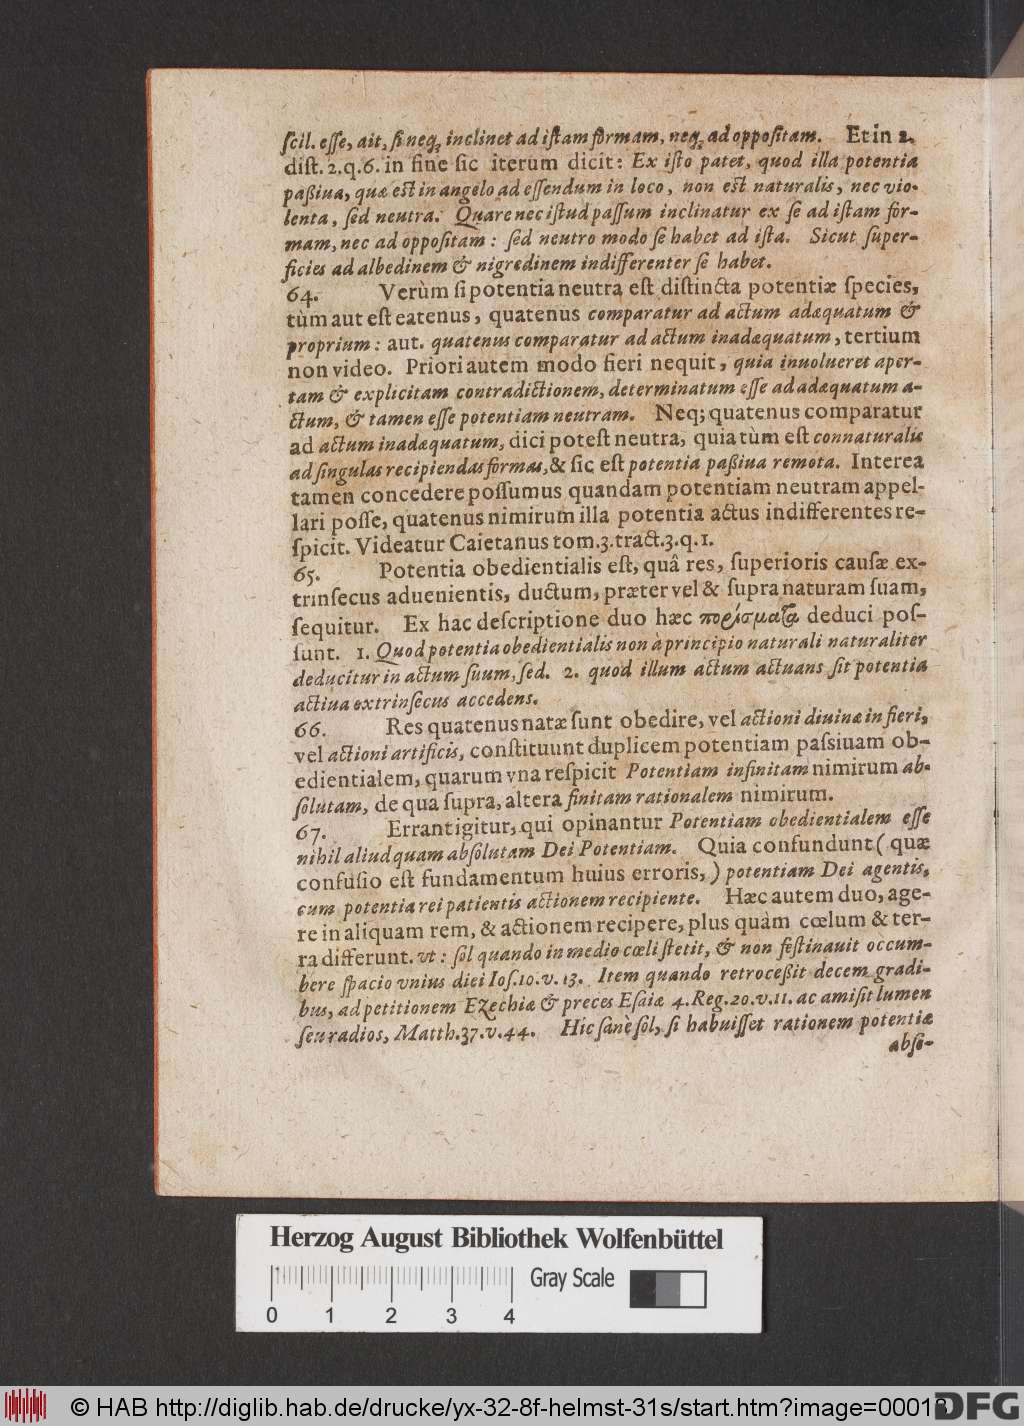 ſcil. eſſe, ait, ſi neq; inclinet ad iſtam formam, neq; ad oppoſitam. Et in 2.
diſt. 2. q. 6. in fine ſic iterum dicit: Ex iſto patet, quod illa potentia
paßiua, quæ eſt in angelo ad eſſendum in loco, non eſt naturalis, nec vio-
lenta, ſed neutra. Quare nec iſtud paſſum inclinatur ex ſe ad iſtam for-
mam, nec ad oppoſitam: ſed neutro modo ſe habet ad iſta. Sicut ſuper-
ficies ad albedinem & nigredinem indifferenter ſe habet.
64. Verùm ſi potentia neutra eſt diſtincta potentiæ ſpecies,
tùm aut eſt eatenus, quatenus comparatur ad actum adæquatum &
proprium: aut. quatenus comparatur ad actum inadæquatum, tertium
non video. Priori autem modo fieri nequit, quia inuolueret aper-
tam & explicitam contradictionem, determinatum eſſe ad adæquatum a-
ctum, & tamen eſſe potentiam neutram. Neq; quatenus comparatur
ad actum inadæquatum, dici poteſt neutra, quia tùm eſt connaturalis
ad ſingulas recipiendas formas, & ſic eſt potentia paßiua remota. Interea
tamen concedere poſſumus quandam potentiam neutram appel-
lari poſſe, quatenus nimirum illa potentia actus indifferentes re-
ſpicit. Videatur Caietanus tom. 3. tract. 3. q. 1.
65. Potentia obedientialis eſt, quâ res, ſuperioris cauſæ ex-
trinſecus aduenientis, ductum, præter vel & ſupra naturam ſuam,
ſequitur. Ex hac deſcriptione duo hæc πορίσματα deduci poſ-
ſunt. 1. Quod potentia obedientialis non à principio naturali naturaliter
deducitur in actum ſuum, ſed. 2. quod illum actum actuans ſit potentia
actiua extrinſecus accedens.
66. Res quatenus natæ ſunt obedire, vel actioni diuinæ in fieri,
vel actioni artificis, conſtituunt duplicem potentiam paſsiuam ob-
edientialem, quarum vna reſpicit Potentiam infinitam nimirum ab-
ſolutam, de qua ſupra, altera finitam rationalem nimirum.
67. Errant igitur, qui opinantur Potentiam obedientialem eſſe
nihil aliud quam abſolutam Dei Potentiam. Quia confundunt ( quæ
confuſio eſt fundamentum huius erroris, ) potentiam Dei agentis,
cum potentia rei patientis actionem recipiente. Hæc autem duo, age-
re in aliquam rem, & actionem recipere, plus quàm cœlum & ter-
ra differunt. vt: ſol quando in medio cœli ſtetit, & non feſtinauit occum-
bere ſpacio vnius diei Ioſ. 10. v. 13. Item quando retroceßit decem gradi-
bus, ad petitionem Ezechiæ & preces Eſaiæ 4. Reg. 20. v. 11. ac amiſit lumen
ſeu radios, Matth. 37. v. 44. Hic ſanè ſol, ſi habuiſſet rationem potentiæ
abſo-
Herzog August Bibliothek Wolfenbüttel
Gray Scale
0 1 2 3 4
© HAB http://diglib.hab.de/drucke/yx-32-8f-helmst-31s/start.htm?image=00013
DFG